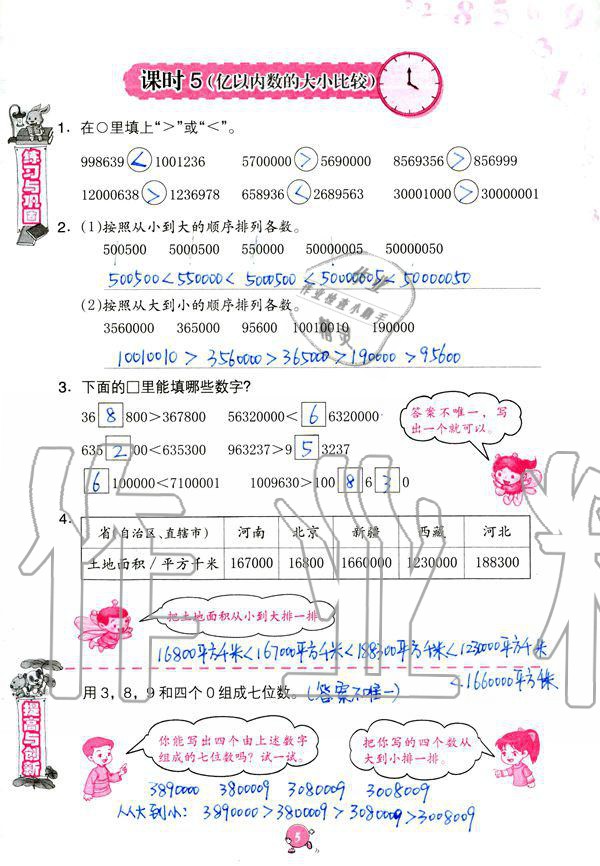 课时5(亿以内数的大小比较)
练习与巩固
1. 在○里填上“>”或“<”。
998639 < 1001236 5700000 > 5690000 8569356 > 856999
12000638 > 1236978 658936 < 2689563 30001000 > 30000001
2. (1)按照从小到大的顺序排列各数。
500500 5000500 550000 50000005 50000050
500500<550000<5000500<50000005<50000050
(2)按照从大到小的顺序排列各数。
3560000 365000 95600 10010010 190000
10010010>3560000>365000>190000>95600
3. 下面的□里能填哪些数字?
36 8 800>367800 56320000< 6 6320000
答案不唯一,写
出一个就可以。
635 2 00<635300 963237>9 5 3237
6 100000<7100001 1009630>100 8 6 3 0
4.
省(自治区、直辖市) 河南 北京 新疆 西藏 河北
土地面积/平方千米 167000 16800 1660000 1230000 188300
把土地面积从小到大排一排。
16800平方千米<167000平方千米<188300平方千米<1230000平方千米
<1660000平方千米
提高与创新
用3,8,9和四个0组成七位数。(答案不唯一)
你能写出四个由上述数字
组成的七位数吗?试一试。
把你写的四个数从
大到小排一排。
3890000 3800009 3080009 3008009
从大到小:3890000>3800009>3080009>3008009
5
作业